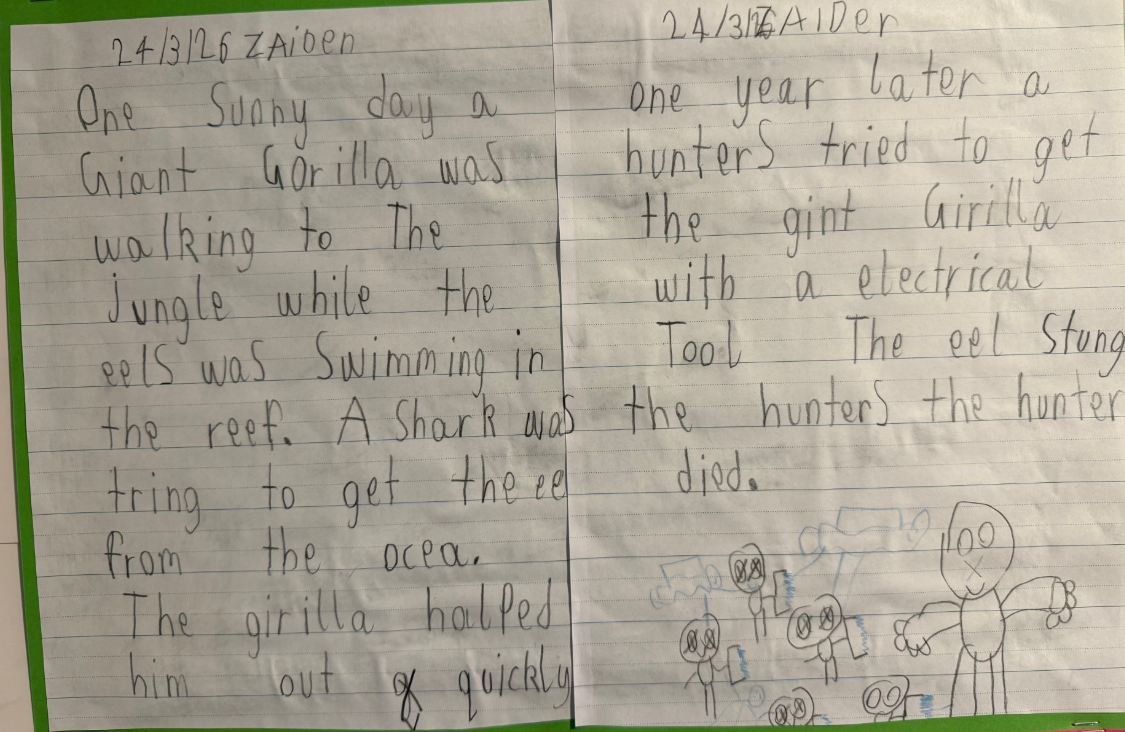 24/3/26 ZAiDen
One Sunny day a
Giant Gorilla was
walking to The
jungle while the
eels was Swimming in
the reef. A Shark was
tring to get the ee
from the ocea.
The girilla halped
him out quickly
24/3/26 ZAIDer
one year later a
hunters tried to get
the gint Girilla
with a electrical
Tool The eel Stung
the hunters the hunter
died.